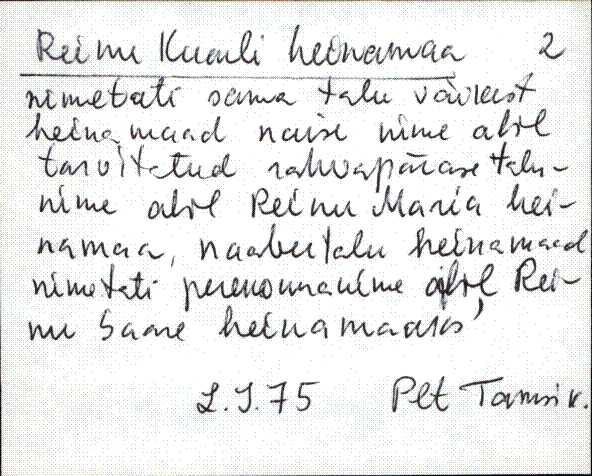 Reinu Kuuli heinamaa 2
nimetati sama talu väikest
heinamaad naise nime abil
tarvitatud rahvapärase talu-
nime abil Reinu Maria hei-
namaa, naabertalu heinamaad
nimetati perekonnanime abil Rei-
nu Saare heinamaaks'
L.J.75 Plt Tamsi k.